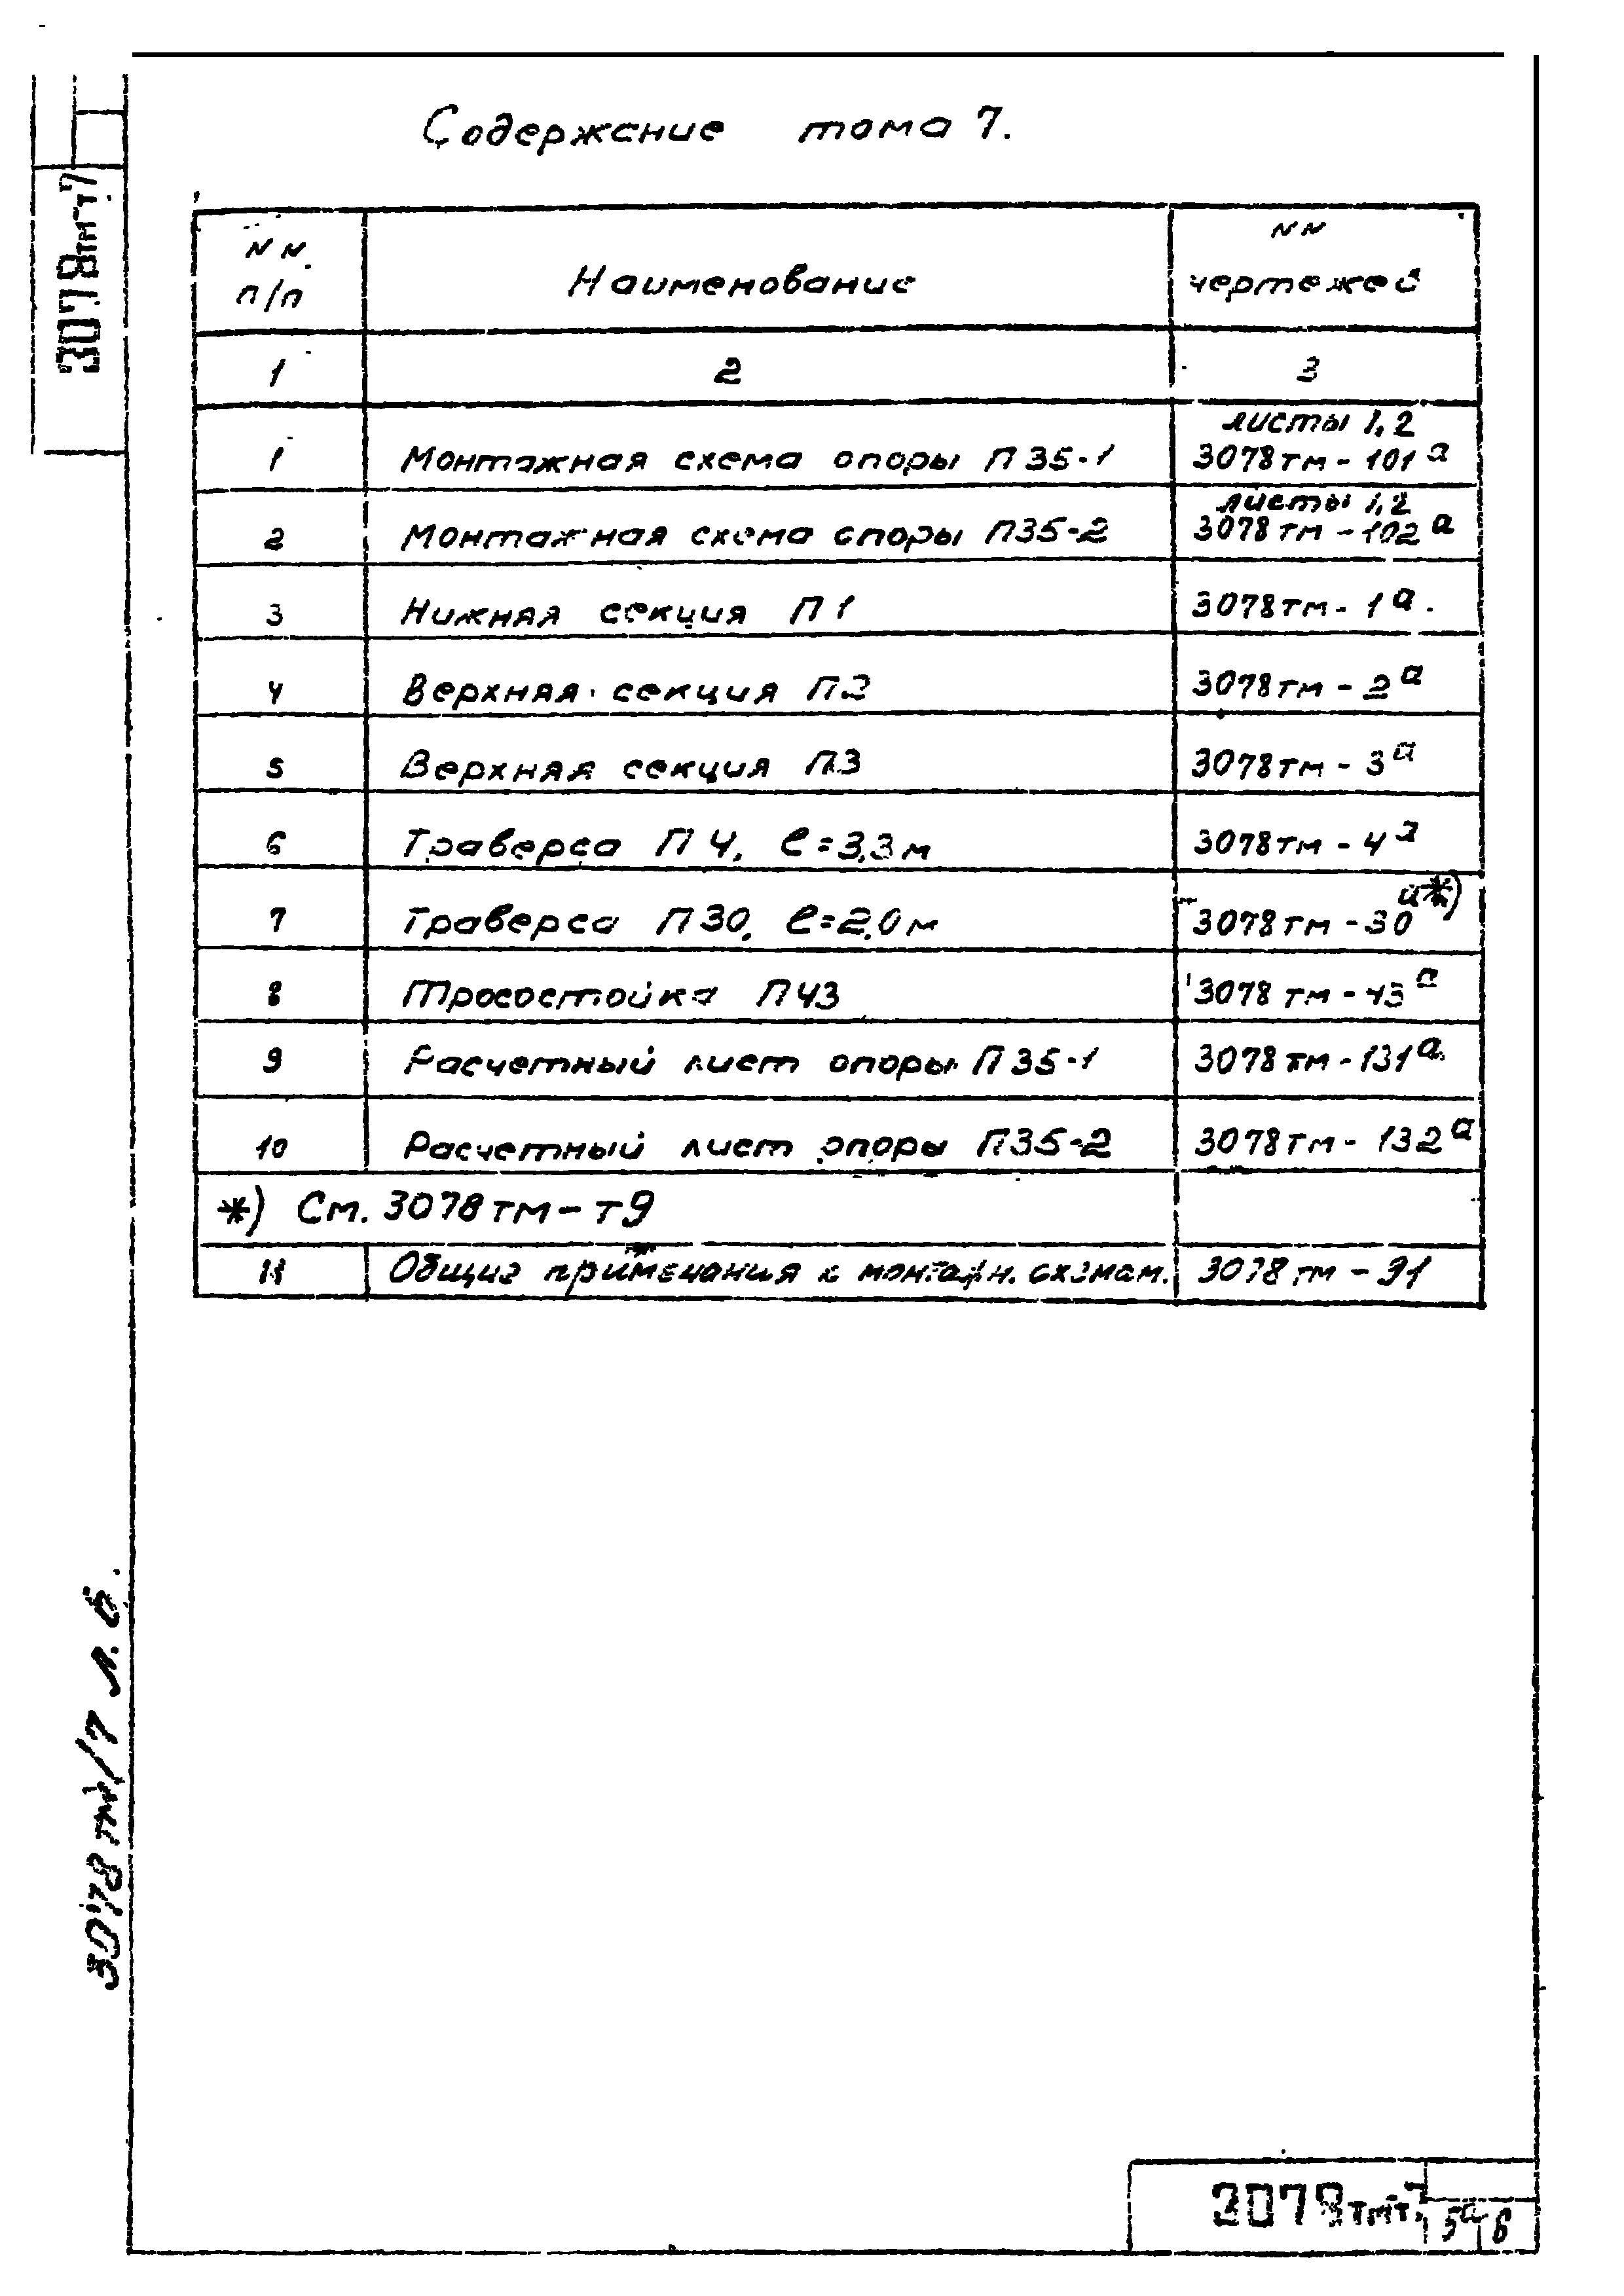 Содержание тома 7.
3078тм-т7
NN п/п Наименование NN чертежей
1 2 3
1 Монтажная схема опоры П35-1 листы 1,2 3078тм-101а
2 Монтажная схема опоры П35-2 листы 1,2 3078тм-102а
3 Нижняя секция П1 3078тм-1а.
4 Верхняя секция П2 3078тм-2а
5 Верхняя секция П3 3078тм-3а
6 Траверса П4, ℓ=3,3м 3078тм-4а
7 Траверса П30, ℓ=2,0м 3078тм-30а*)
8 Тросостойка П43 3078тм-43а
9 Расчетный лист опоры П35-1 3078тм-131а
10 Расчетный лист опоры П35-2 3078тм-132а
*) См. 3078тм-т9
11 Общие примечания к монтажн. схемам. 3078тм-91
3078тм/7 л.
3078тм-т7 5а 6